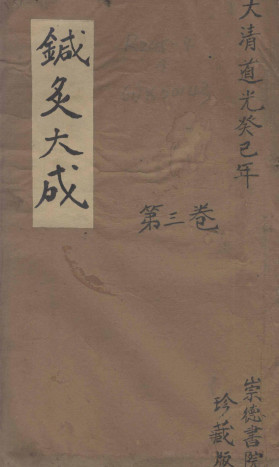 大清道光癸巳年
鍼灸大成
第三卷
崇德書院
珍藏版